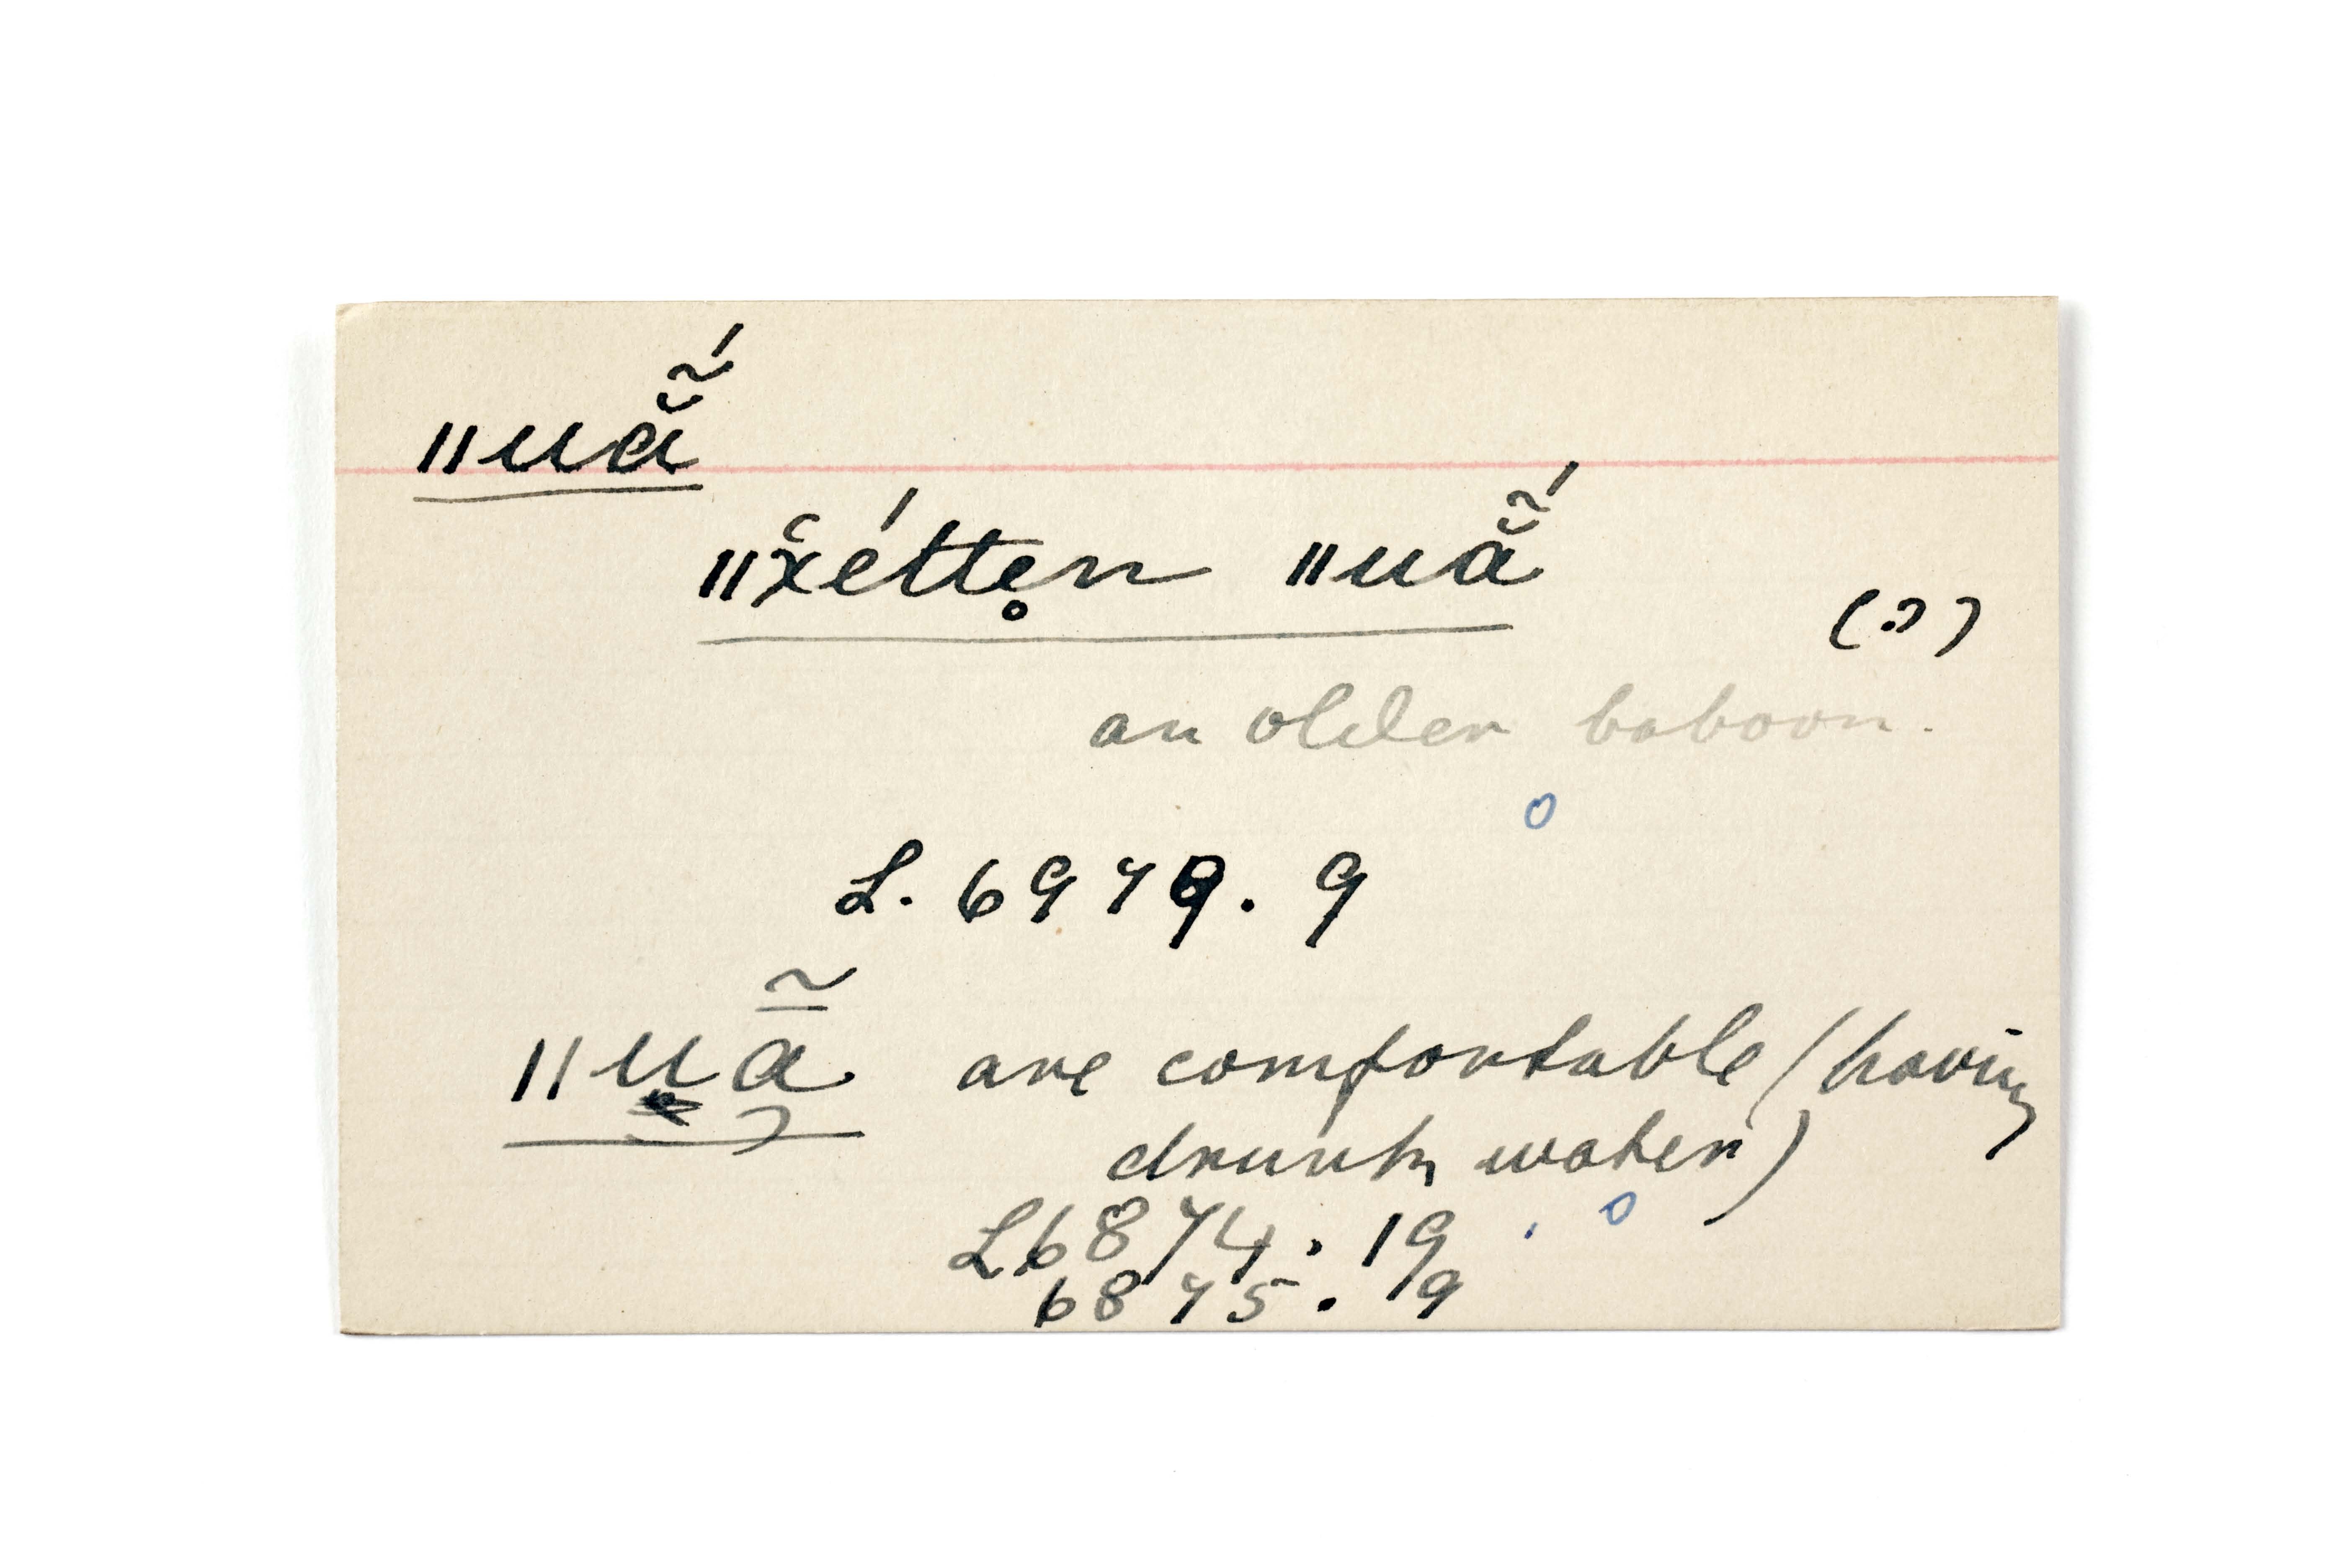 ǁuắ̃
ǁx̆éttẹn ǁuắ̃
(?)
an older baboon.
L. 6979. 9
ǁuā̃ are comfortable (having
drunk water)
L6874. 19
6875. 19